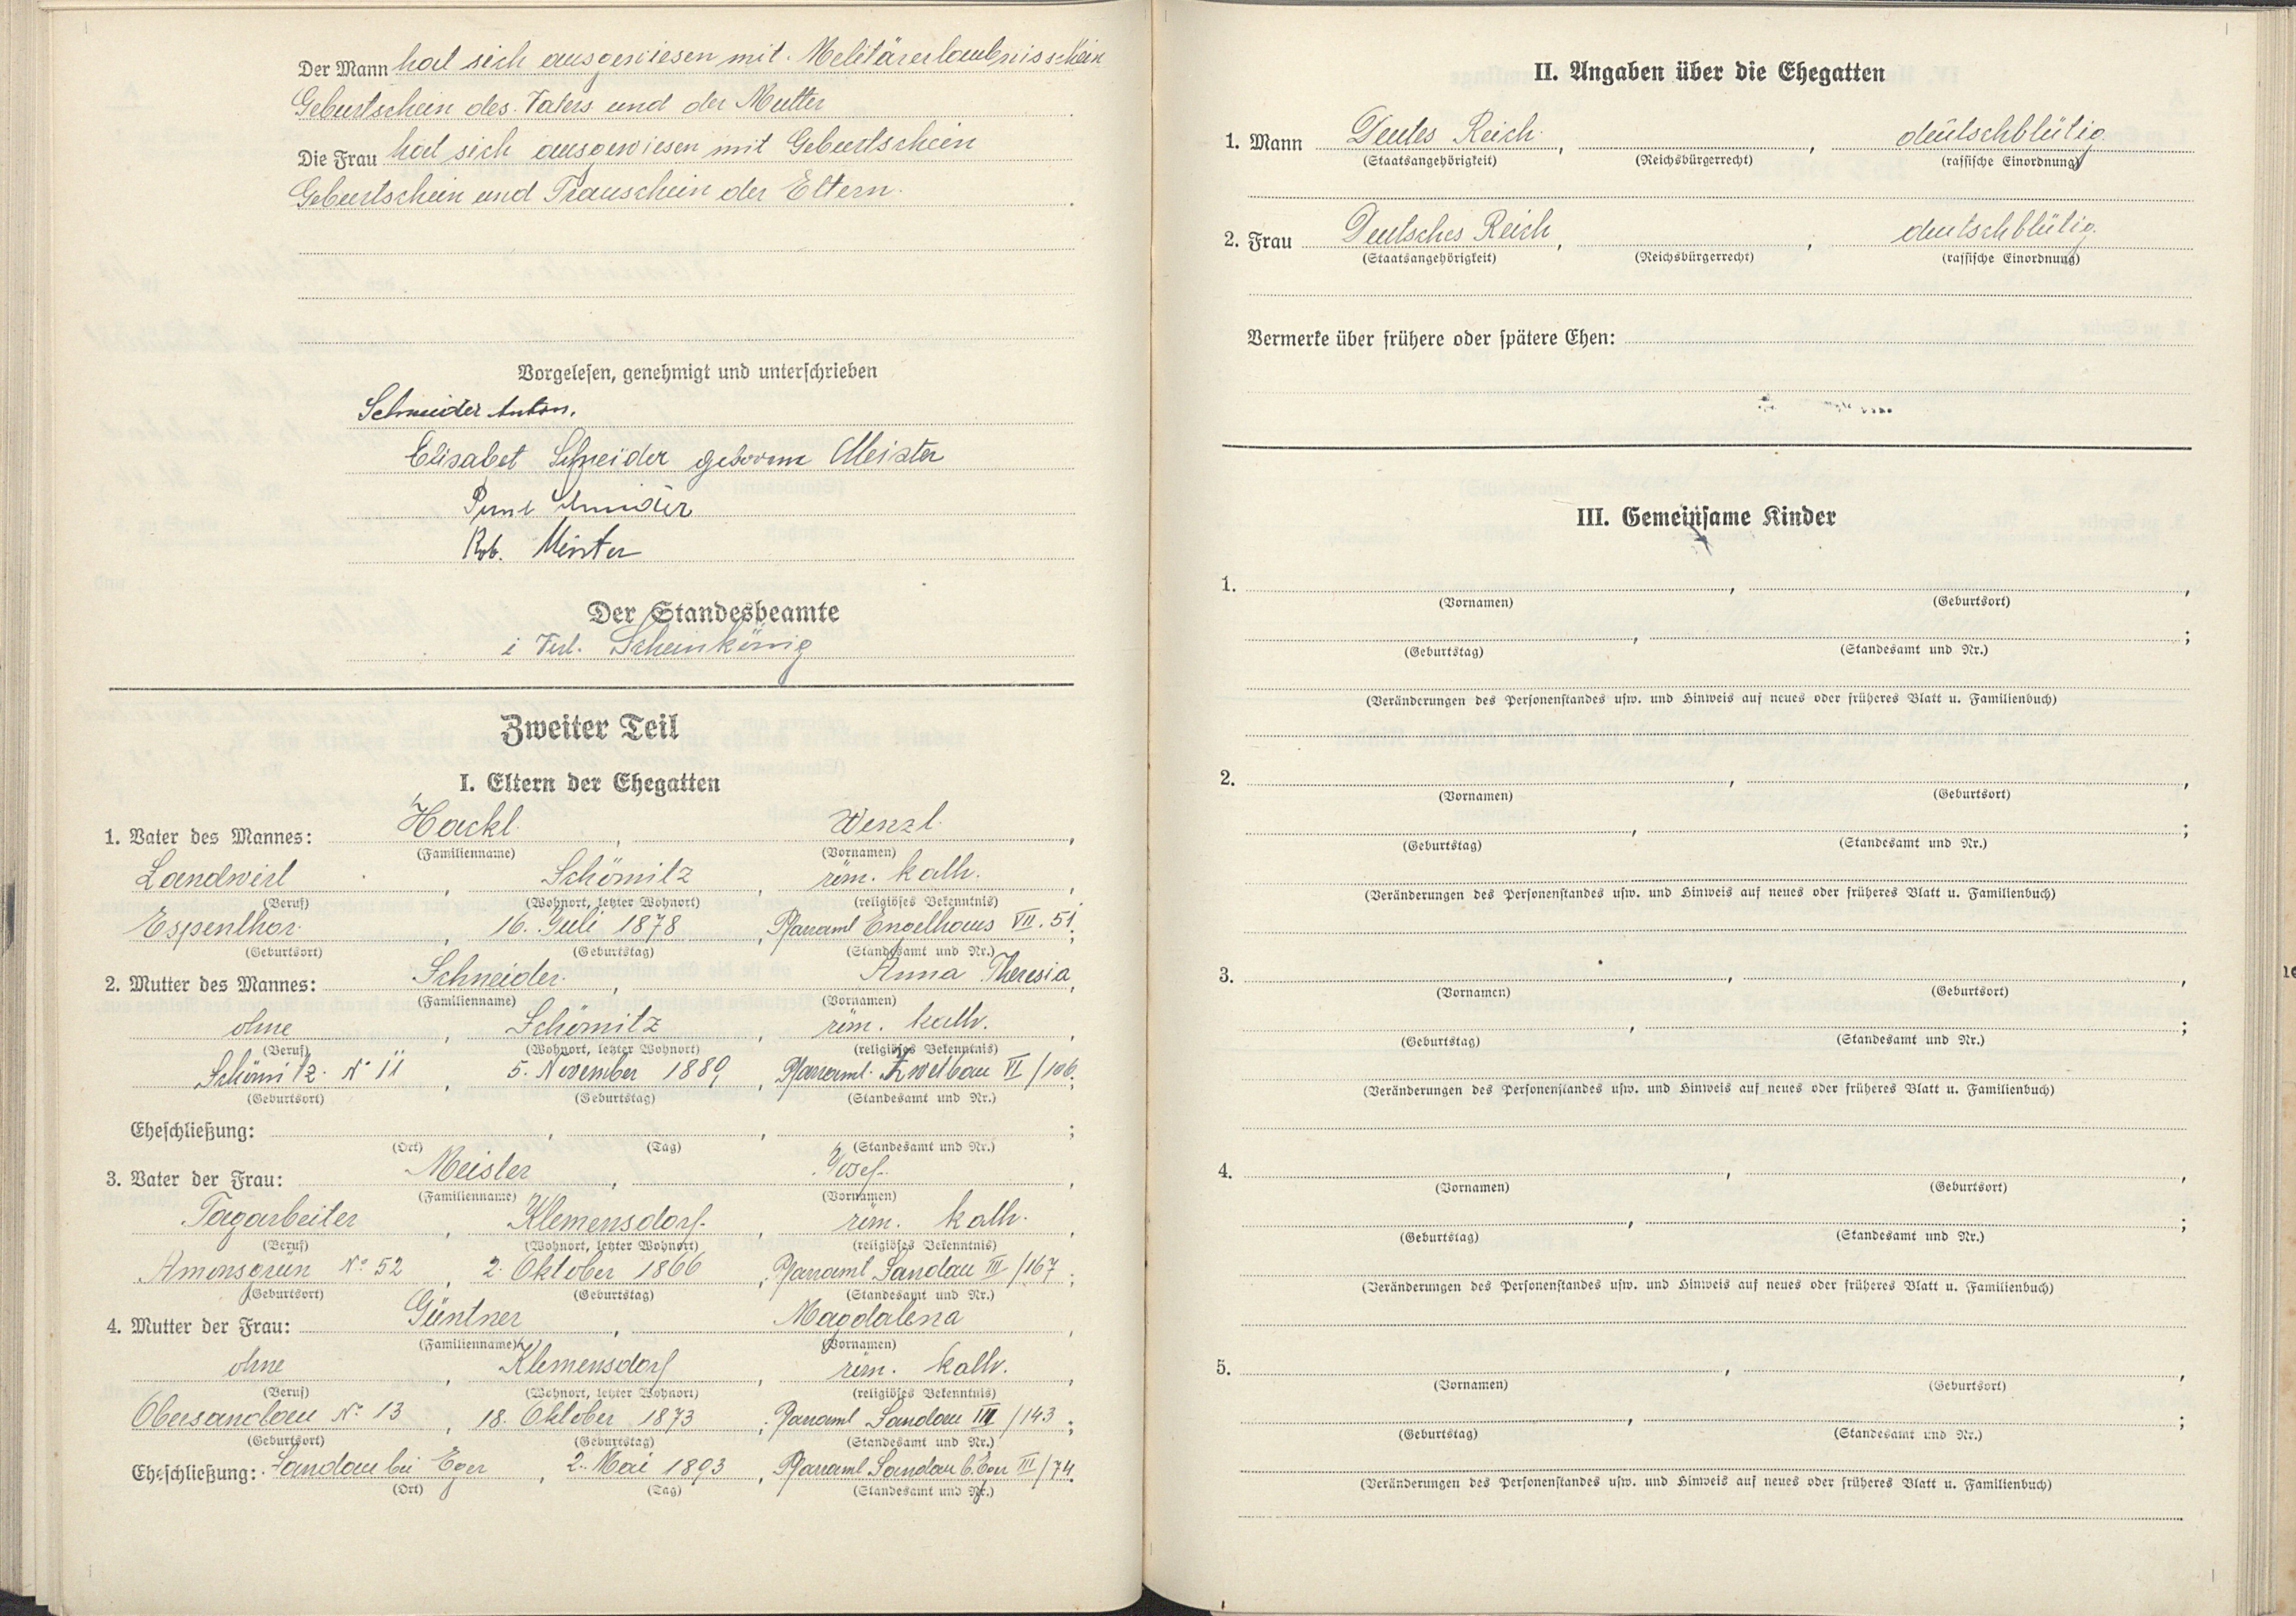 Der Mann hat sich ausgewiesen mit. Melitärerlaubnisschein
Geburtschein des Vaters und der Mutter
Die Frau hat sich ausgewiesen mit Geburtschein
Geburtschein und Trauschein der Eltern.
Vorgelesen, genehmigt und unterschrieben
Schneider Anton.
Elisabet Schneider geborene Meister
Rob. Meister
Der Standesbeamte
Scheinkönig
Zweiter Teil
I. Eltern der Ehegatten
1. Vater des Mannes: Hackl, Wenzl.,
(Familienname) (Vornamen)
Landwirt, Schömitz, röm. kath.,
(Beruf) (Wohnort, letzter Wohnort) (religiöses Bekenntnis)
Espenthor, 16. Juli 1878, Pfarramt Engelhaus VII. 51;
(Geburtsort) (Geburtstag) (Standesamt und Nr.)
2. Mutter des Mannes: Schneider, Anna Theresia,
(Familienname) (Vornamen)
ohne, Schömitz, röm. kath.,
(Beruf) (Wohnort, letzter Wohnort) (religiöses Bekenntnis)
Schömitz N° 11, 5. November 1889, Pfarramt Zwetbau VI/106;
(Geburtsort) (Geburtstag) (Standesamt und Nr.)
Eheschließung: , , ;
(Ort) (Tag) (Standesamt und Nr.)
3. Vater der Frau: Meister, Josef,
(Familienname) (Vornamen)
Tagarbeiter, Klemensdorf, röm. kath.,
(Beruf) (Wohnort, letzter Wohnort) (religiöses Bekenntnis)
Amonsgrün N° 52, 2. Oktober 1866, Pfarramt Sandau III/167;
(Geburtsort) (Geburtstag) (Standesamt und Nr.)
4. Mutter der Frau: Güntner, Magdalena,
(Familienname) (Vornamen)
ohne, Klemensdorf, röm. kath.,
(Beruf) (Wohnort, letzter Wohnort) (religiöses Bekenntnis)
Obersandau N° 13, 18. Oktober 1873, Pfarramt Sandau III/143;
(Geburtsort) (Geburtstag) (Standesamt und Nr.)
Eheschließung: Sandau bei Eger, 2. Mai 1893, Pfarramt Sandau b. Eger III/74.
(Ort) (Tag) (Standesamt und Nr.)
II. Angaben über die Ehegatten
1. Mann Deutes Reich, , deutschblütig.
(Staatsangehörigkeit) (Reichsbürgerrecht) (rassische Einordnung)
2. Frau Deutsches Reich, , deutschblütig.
(Staatsangehörigkeit) (Reichsbürgerrecht) (rassische Einordnung)
Vermerke über frühere oder spätere Ehen:
III. Gemeinsame Kinder
1. , ,
(Vornamen) (Geburtsort)
, ;
(Geburtstag) (Standesamt und Nr.)
(Veränderungen des Personenstandes usw. und Hinweis auf neues oder früheres Blatt u. Familienbuch)
2. , ,
(Vornamen) (Geburtsort)
, ;
(Geburtstag) (Standesamt und Nr.)
(Veränderungen des Personenstandes usw. und Hinweis auf neues oder früheres Blatt u. Familienbuch)
3. , ,
(Vornamen) (Geburtsort)
, ;
(Geburtstag) (Standesamt und Nr.)
(Veränderungen des Personenstandes usw. und Hinweis auf neues oder früheres Blatt u. Familienbuch)
4. , ,
(Vornamen) (Geburtsort)
, ;
(Geburtstag) (Standesamt und Nr.)
(Veränderungen des Personenstandes usw. und Hinweis auf neues oder früheres Blatt u. Familienbuch)
5. , ,
(Vornamen) (Geburtsort)
, ;
(Geburtstag) (Standesamt und Nr.)
(Veränderungen des Personenstandes usw. und Hinweis auf neues oder früheres Blatt u. Familienbuch)